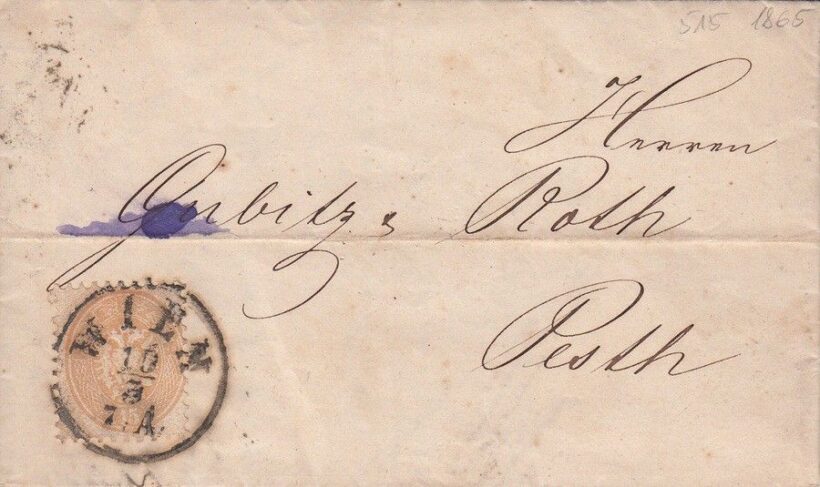 515 1865
Herren
Gubitz & Roth
Pesth
WIEN
10
5
7.A.